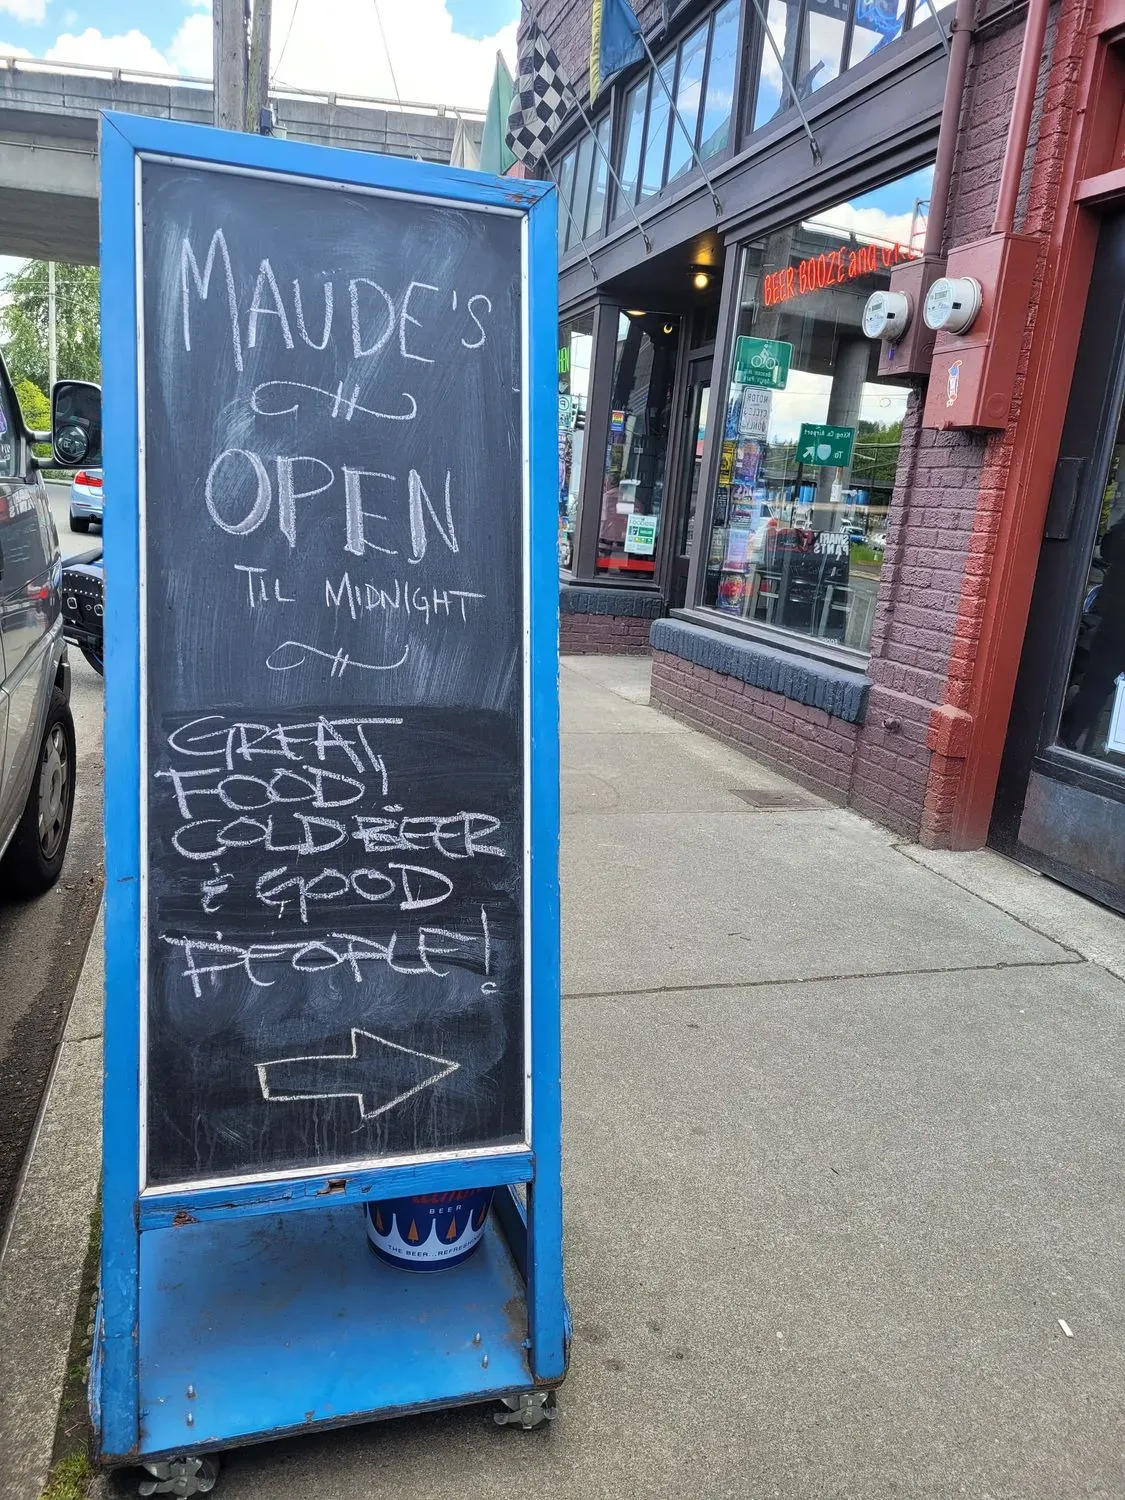 MAUDE'S
OPEN
TIL MIDNIGHT
GREAT
FOOD!
COLD BEER
& GOOD
PEOPLE!
BEER BOOZE and
MOTOR
CYCLE
ONLY
King Co Airport
To
SMARTY
PANTS
BEER
THE BEER...